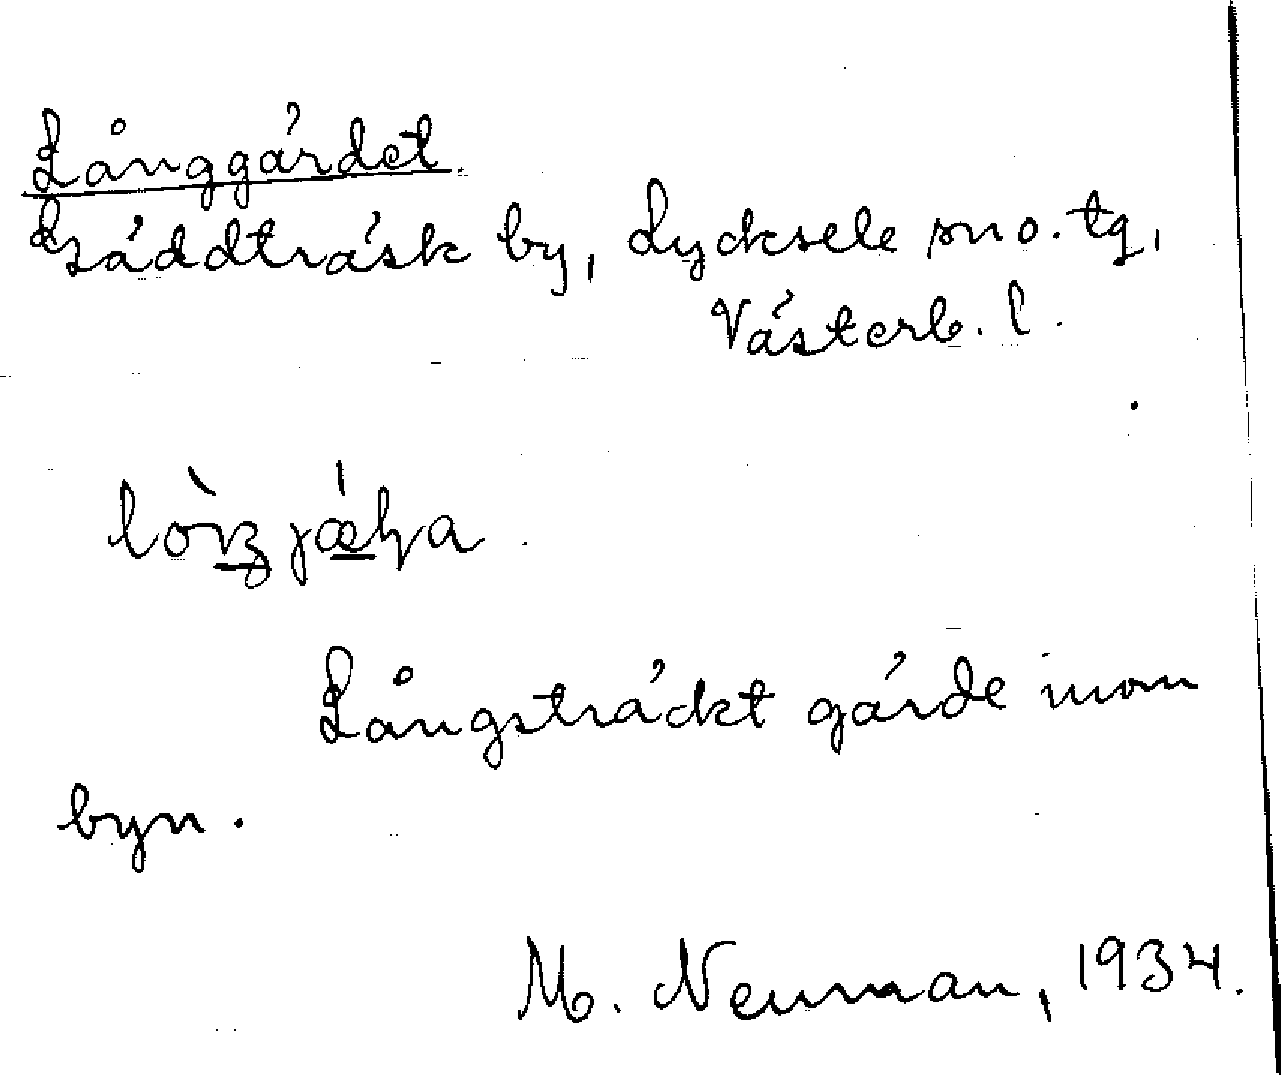 Långgärdet.
Bräddträsk by, Lycksele sno. tg,
Västerb. l.
Långsträckt gärde inom
byn.
M. Neuman, 1934.